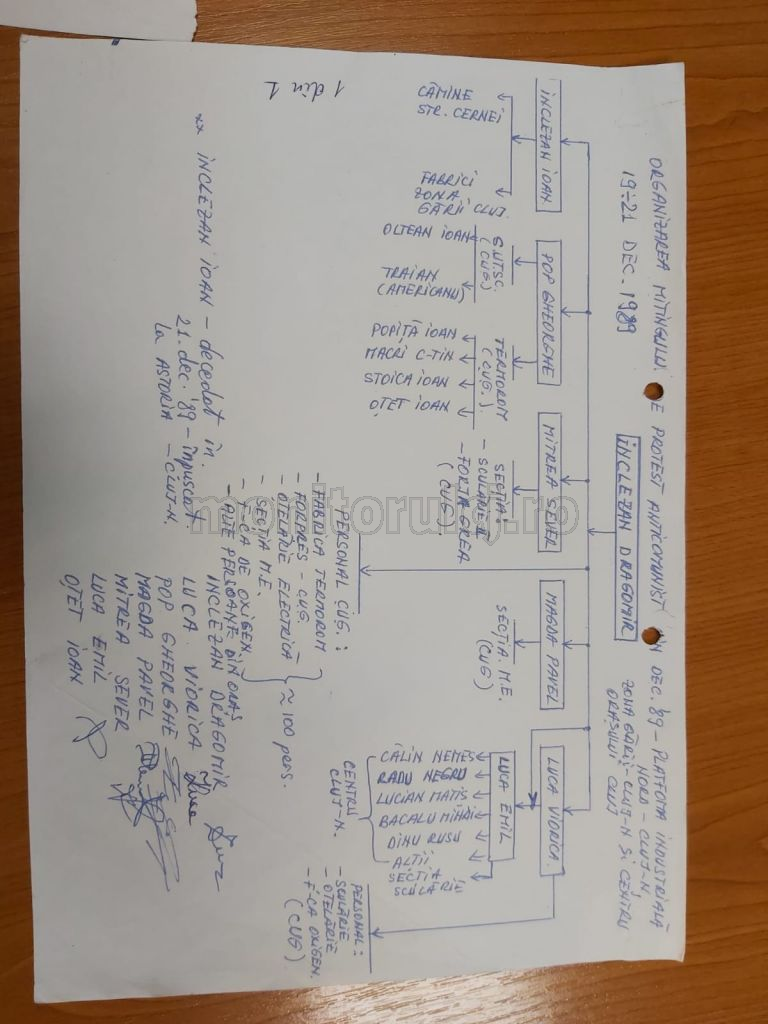 ORGANIZAREA MITINGULUI DE PROTEST ANTICOMUNIST DIN DEC. '89 - PLATFOMA INDUSTRIALĂ
NORD - CLUJ-N,
19÷21 DEC. 1989
ZONA GĂRII - CLUJ-N SI CENTRU
ORAȘULUI CLUJ
ÎNCLEZAN DRAGOMIR
ÎNCLEZAN IOAN
POP GHEORGHE
MITREA SEVER
MAGDA PAVEL
LUCA VIORICA
CĂMINE
STR. CERNEI
FABRICI
ZONA
GĂRII CLUJ.
(CUG)
OLTEAN IOAN
TRAIAN
(AMERICANU)
TERMOROM
(CUG.)
POPIȚĂ IOAN
MACRI C-TIN
STOICA IOAN
OȚET IOAN
SECȚIA:
- SCULĂRIE II
- FORJA GREA
(CUG).
SECȚIA. M.E.
(CUG)
LUCA EMIL
CĂLIN NEMEȘ
RADU NEGRU
LUCIAN MATIȘ
BACALU MIHAI
DINU RUSU
ALȚII
SECȚIA
SCULĂRIE
CENTRU
CLUJ-N.
PERSONAL:
- SCULĂRIE
- OȚELĂRIE
- F-CA OXIGEN.
(CUG)
PERSONAL CUG.:
- FABRICA TERMOROM
- FORPRES - CUG
- OȚELĂRIE ELECTRICĂ
- SECȚIA M.E.
- F-CA DE OXIGEN.
- ALTE PERSOANE DIN ORAȘ
≈ 100 pers.
1 din 1
** ÎNCLEZAN IOAN - decedat în
21. dec. '89 - împușcat
la ASTORIA - CLUJ-N.
INCLEZAN DRAGOMIR
LUCA VIORICA
POP GHEORGHE
MAGDA PAVEL
MITREA SEVER
LUCA EMIL
OȚET IOAN
monitorulcj.ro